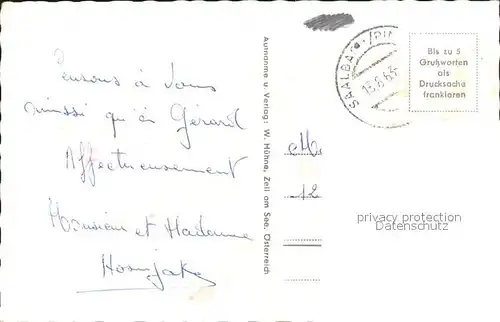 Pensons à vous
ainssi qu'à Gérard
Affectueusement
Monsieur et Madame
Aufnahme u. Verlag: W. Höhne, Zell am See, Österreich
SAALBACH/PIN
15.8.63
Bis zu 5
Grußworten
als
Drucksache
frankieren
M.
12
privacy protection
Datenschutz